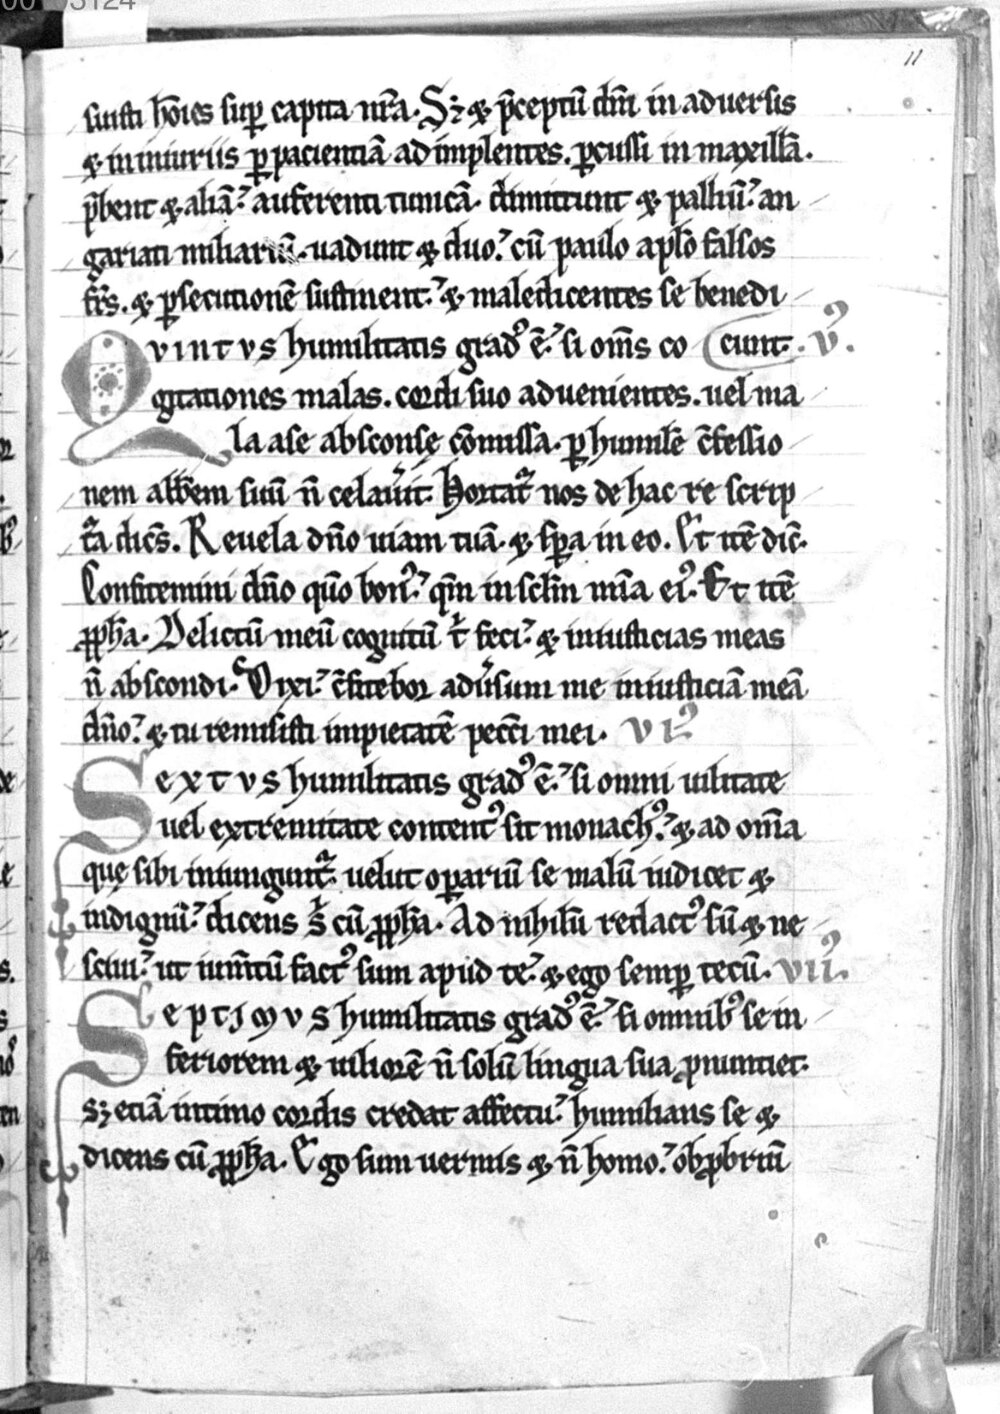 00 03124
11
suisti hōies sup̄ capita nr̄a. Sꝫ & p̄ceptū dn̄i in aduersis
& in iniuriis p̱ pacientiā adimplentes. p̱cussi in maxillā.
p̄bent & aliā? auferenti tunicā. dimittunt & palliū? an
gariati miliariū. uadunt & duo? cū paulo aplo falsos
fr̄s. & p̱secutionē sustinent? & maledicentes se benedi
Qvintvs humilitatis gradꝰ ē? si om̄s co cunt. vꝰ.
gitationes malas. cordi suo aduenientes. uel ma
la a se absconse cōmissa. p̱ humilē c̄fessio
nem abbem suū n̄ celauit. Hortat᷑ nos de hac re scrip
t᷑a dicēs. Reuela dn̄o uiam tuā. & sp̱a in eo. Et itē dic̄.
Confitemini dn̄o qūo bonꝰ? qm̄ in sclm̄ mīa eiꝰ. Et itē
pph̄a. Delictū meū cognitū t̄ feci? & iniusticias meas
n̄ abscondi. Dixi? c̄fitebor adūsum me iniusticiā meā
dn̄o? & tu remisisti impietatē pecc̄i mei. vıꝰ
Sextvs humilitatis gradꝰ ē? si omni uilitate
uel extremitate contentꝰ sit monachꝰ? & ad om̄a
quę sibi iniungunt᷑. uelut oparīū se malū iudicet &
indignū? dicens s̄ cū pph̄a. Ad nihilū redactꝰ sū & ne
sciui? ut iumtū factꝰ sum apud te? & ego semp̱ tecū. vııꝰ.
Septimvs humilitatis gradꝰ ē? si omnibꝰ se in
feriorem & uiliorē n̄ solū lingua sua ꝓnuntiet.
sꝫ etiā intimo cordis credat affectu? humilians se &
dicens cū pph̄a. Ego sum uermis & n̄ homo? obꝓbriū